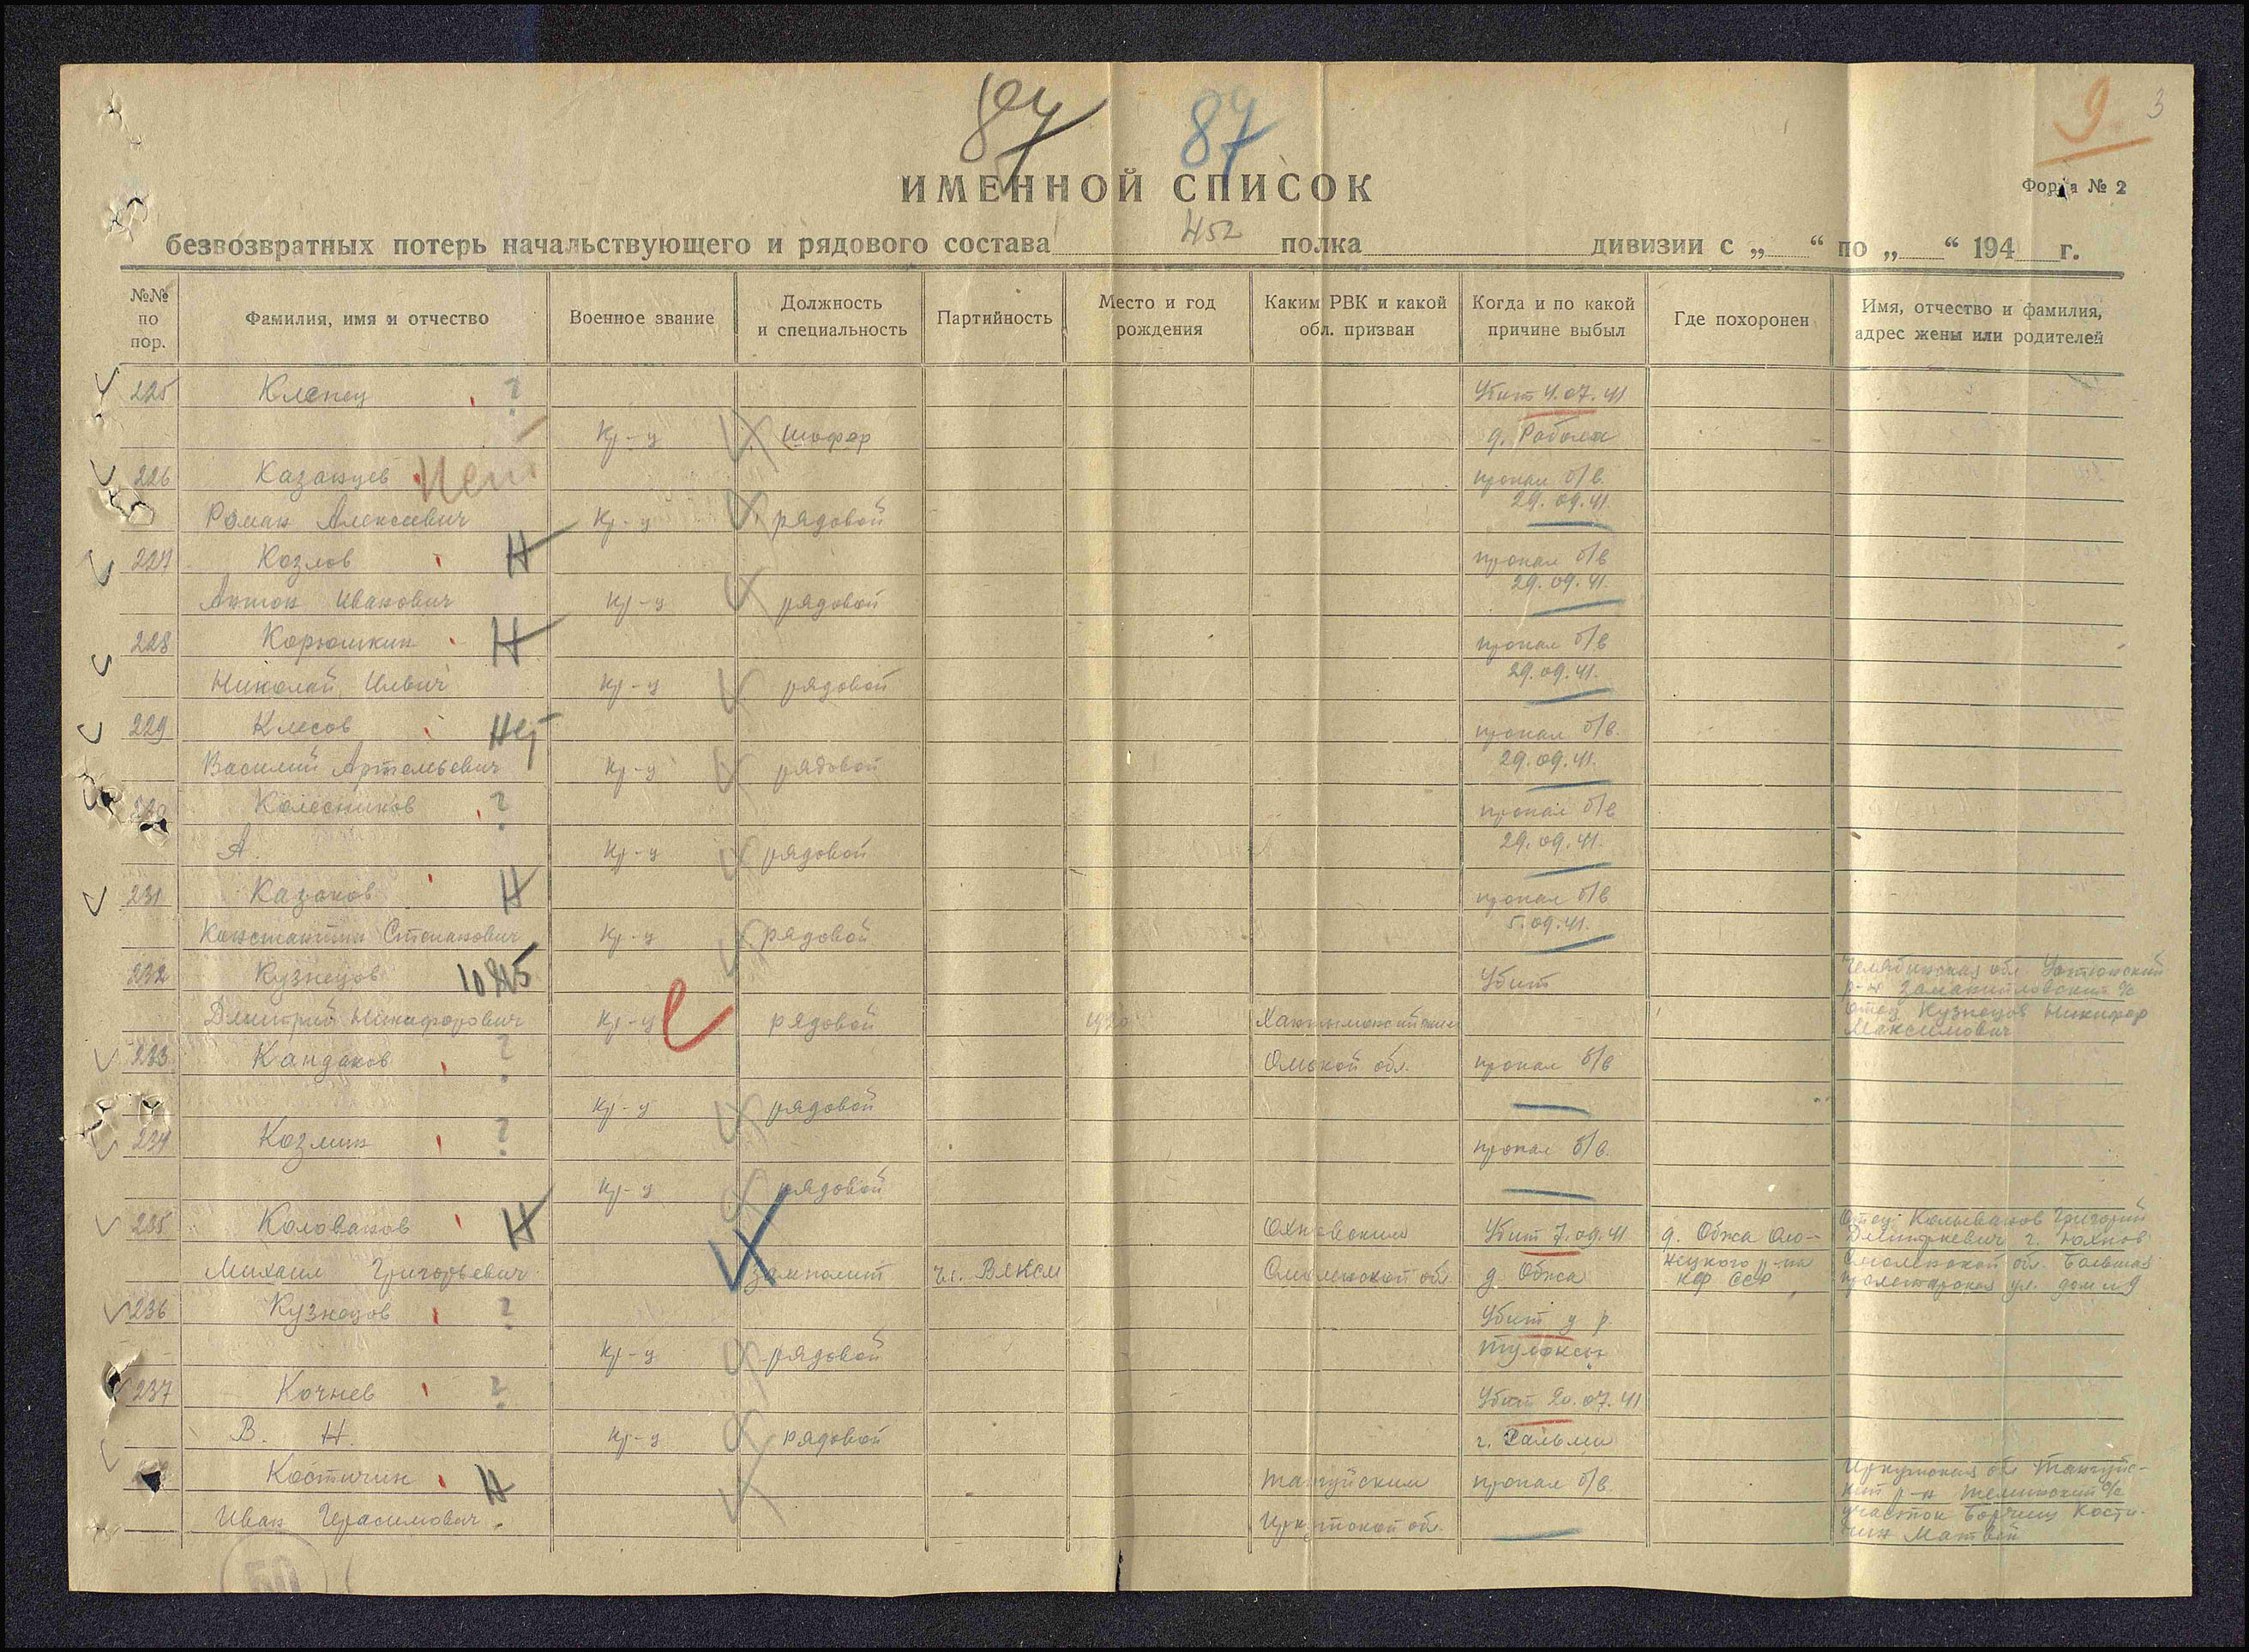 87 87 9. 3
ИМЕННОЙ СПИСОК
Форма № 2
безвозвратных потерь начальствующего и рядового состава 452 полка дивизии с „ “ по „ “ 194 г.
№№ по пор.
Фамилия, имя и отчество
Военное звание
Должность и специальность
Партийность
Место и год рождения
Каким РВК и какой обл. призван
Когда и по какой причине выбыл
Где похоронен
Имя, отчество и фамилия, адрес жены или родителей
225 Клепец ? Убит 4.07.41
Кр-ц шофер д.
226 Казанцев Нет пропал б/в.
29.09.41
Роман Алексеевич Кр-ц рядовой
227 Козлов Н пропал б/в
29.09.41.
Антон Иванович Кр-ц рядовой
228 Корюшкин Н пропал б/в
29.09.41.
Николай Ильич Кр-ц рядовой
229 Клесов Нет пропал б/в.
Василий Кр-ц рядовой 29.09.41.
Колесников ? пропал б/в
А. Кр-ц рядовой 29.09.41.
231 Казаков Н пропал б/в
Константин Степанович Кр-ц рядовой 5.09.41.
232 Кузнецов Убит Челябинская обл.
Дмитрий Никифорович Кр-ц рядовой 1920 отец Кузнецов Никифор
Максимович
233 Кандаков ? Омской обл. пропал б/в
Кр-ц рядовой
234 Козлин ? пропал б/в.
Кр-ц рядовой
235 Колованов Н Убит 7.09.41 д. Обжа Оло- Отец Григорий
Михаил Григорьевич замполит чл. ВЛКСМ Смоленской обл. д. Обжа нецкого р-на Смоленской обл. Большая
КФ ССР пролетарская ул. дом № 9
236 Кузнецов ? Убит у р.
Кр-ц рядовой Тулоксы
237 Кочнев ? Убит 20.07.41
В. Н. Кр-ц рядовой г. Сальми
Костичин Н Тангуйским пропал б/в. Иркутская обл. Тангуйс-
кий р-н
Иван Герасимович Иркутской обл. участок Кости-
чин Матвей
50